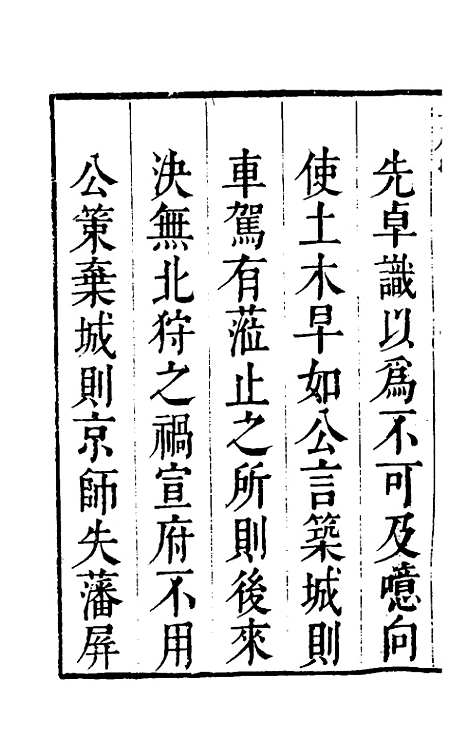 先卓識以為不可及噫向
使土木早如公言築城則
車駕有蒞止之所則後來
決無北狩之禍宣府不用
公策棄城則京師失藩屏